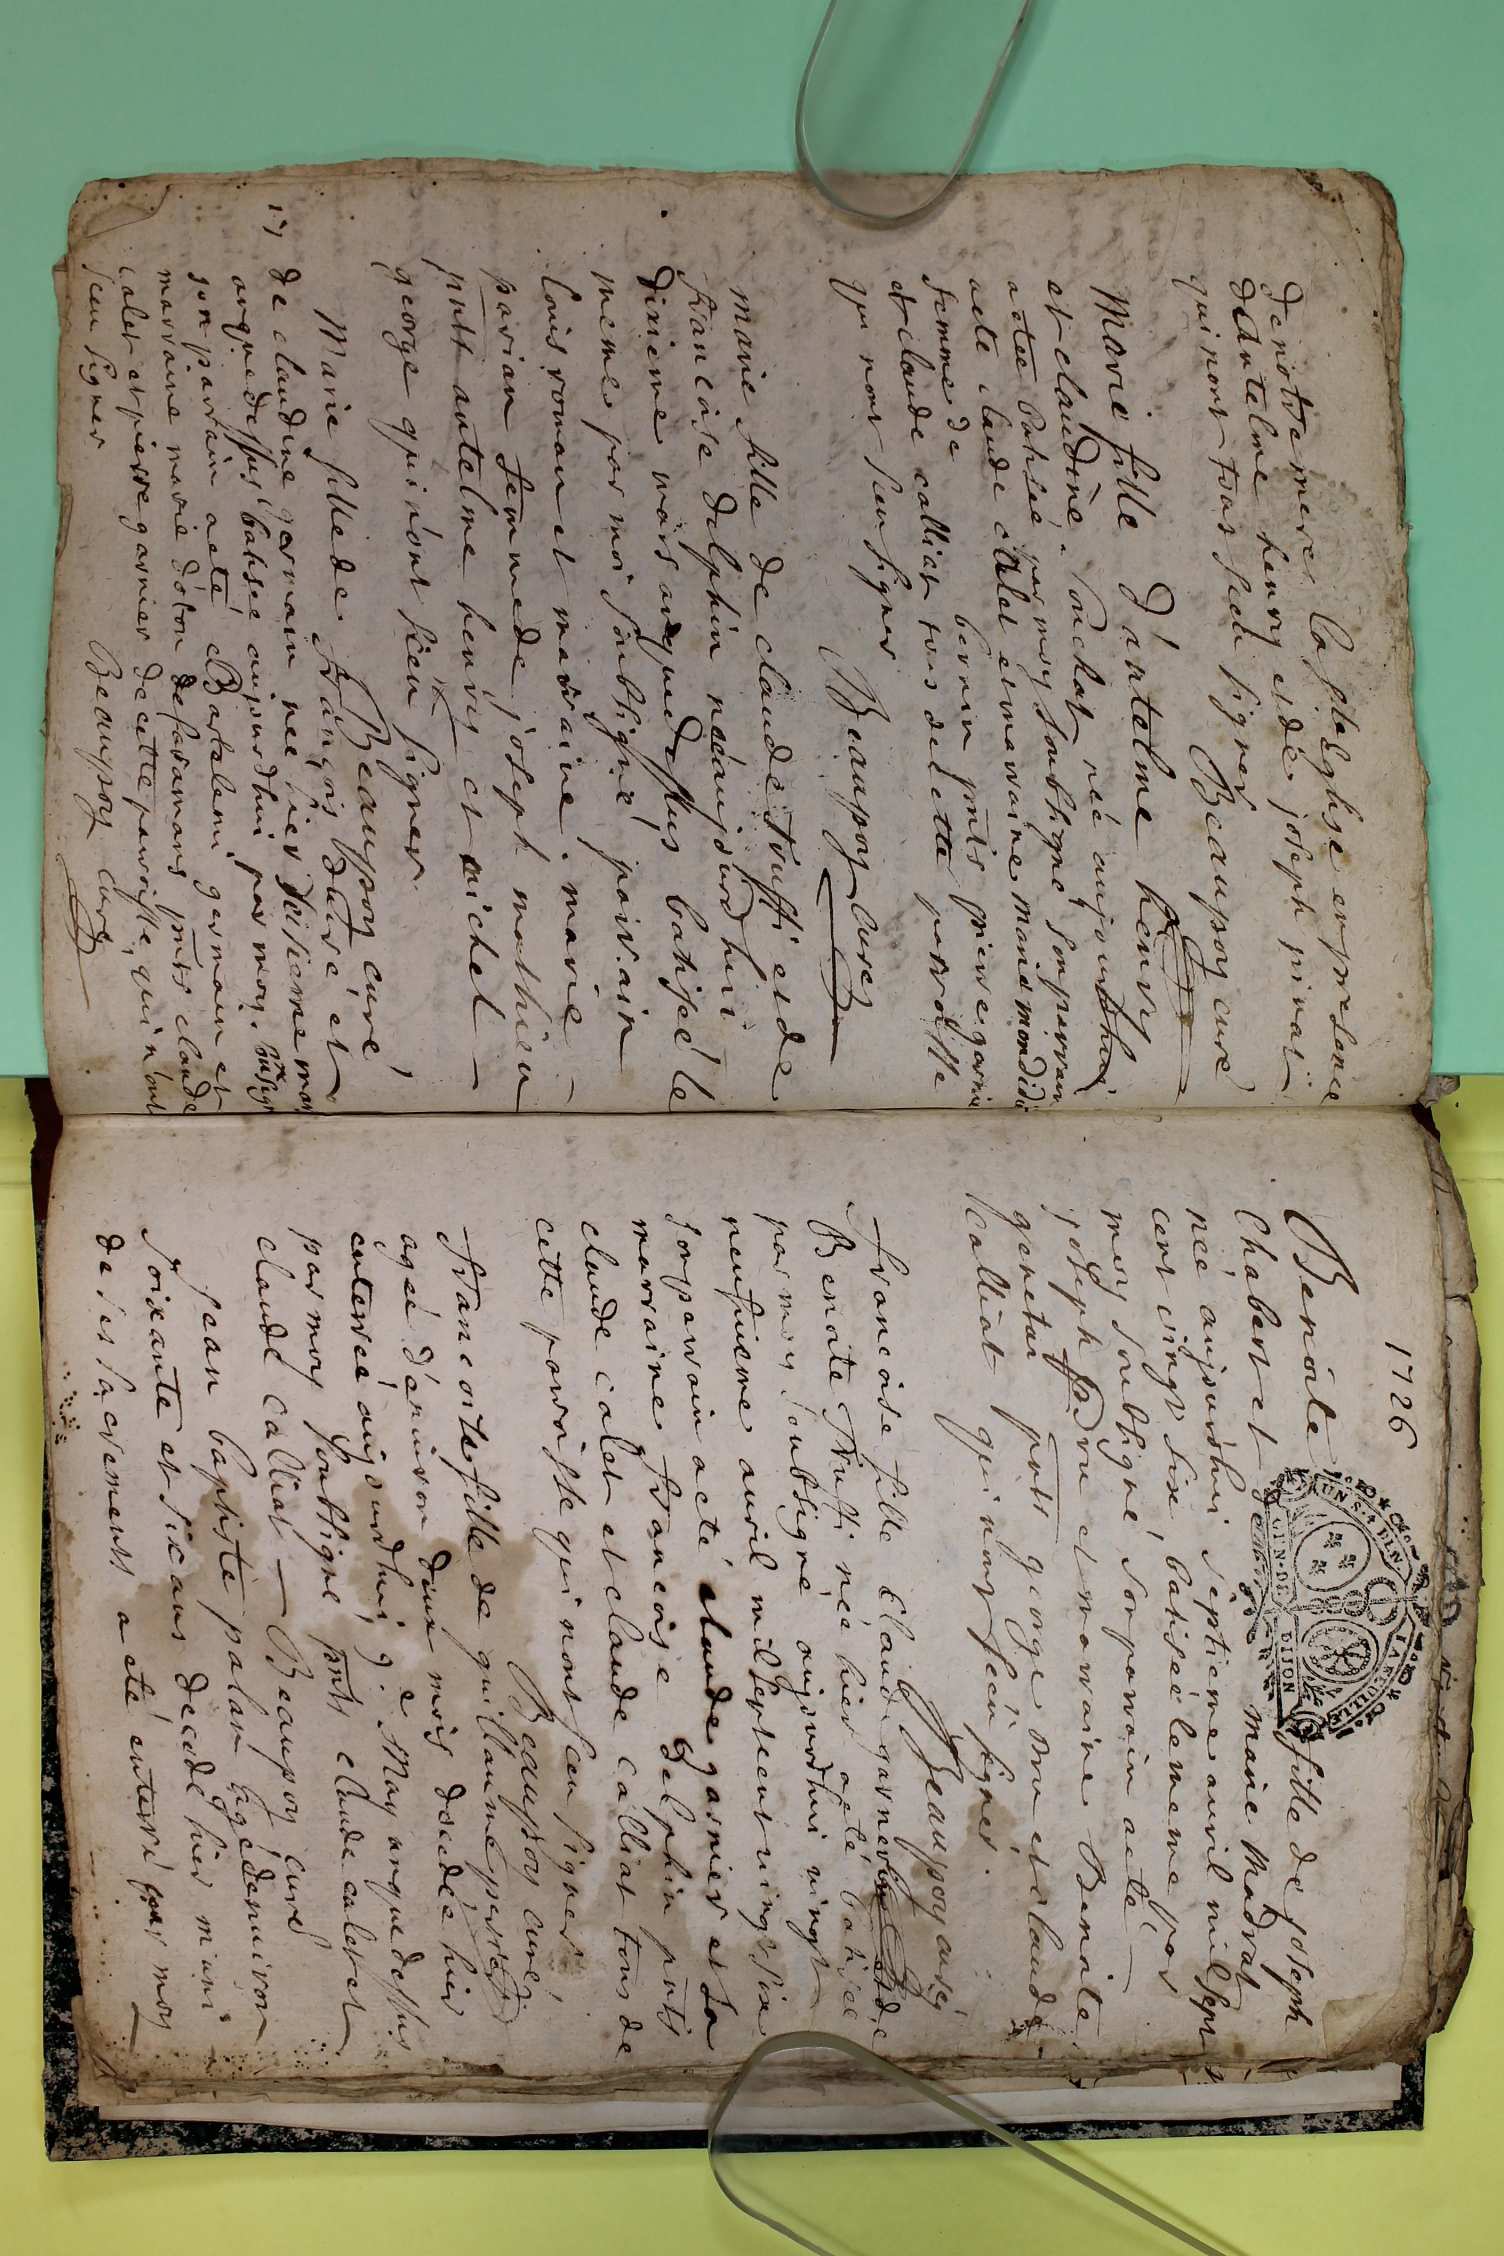 de notre mere la ste Eglise en presence
d'Antelme henry et de joseph pivat
qui n'ont tous sceu signer
Beaupoy curé
Marie fille d'antelme henry
et claudine pochat née aujourdhuy
a etee batisée par moy soubsigné son parrain
acte claude calet et marraine
femme de pierre garnier
et claude calliat tous de cette parroisse
qui n'ont sceu signer
Beaupoy curé
marie fille de claude truffi et de
francoise delphin née aujourdhui
dixieme mars an que dessus batisée le
meme par moi soubsigné parrain
louis roman et marraine marie
parian femme de joseph mathieu
pnts antelme henris et michel
george qui n'ont sceu signer
Beaupoy curé
Marie fille de françois et
de claudine germain née hier
an que dessus batisée aujourdhui par moy soubsigné
son parrain acté Bartelemi germain et
marraine marie pnts claude
calet et pierre garnier de cette parroisse qui n'ont
sceu signer
Beaupoy curé
1726
GEN. DE DIJON
Benoite fille de joseph
Chabert et marie madrat
née aujourdhui septieme auvril mil sept
cent vingt six, batisée le meme par
moy soubsigné, son parrain acté
joseph et marraine Benoite
pnts george et claude
Calliat qui n'ont sceu signer.
Beaupoy curé
francoise fille Claude garnier et de
Benoite truffi née hier a eté batisée
par moy soubsigné aujourdhui vingt
neufvieme auril mil sept cent vingt six
son parrain acté claude garnier et sa
marraine francoise delphin pnts
claude calet et claude calliat tous de
cette parroisse qui n'ont sceu signer
Beaupoy curé
francoise fille de guillaume
agée d'anuiron deux mois decedé hier
enterrée aujourdhui 9e may an que dessus
par moy soubsigné pnts claude calet et
claude calliat Beaupoy curé
Jean baptiste palan agé denuiron
soixante et six ans decedé hier muni
de ses sacrements a eté enterré par moy